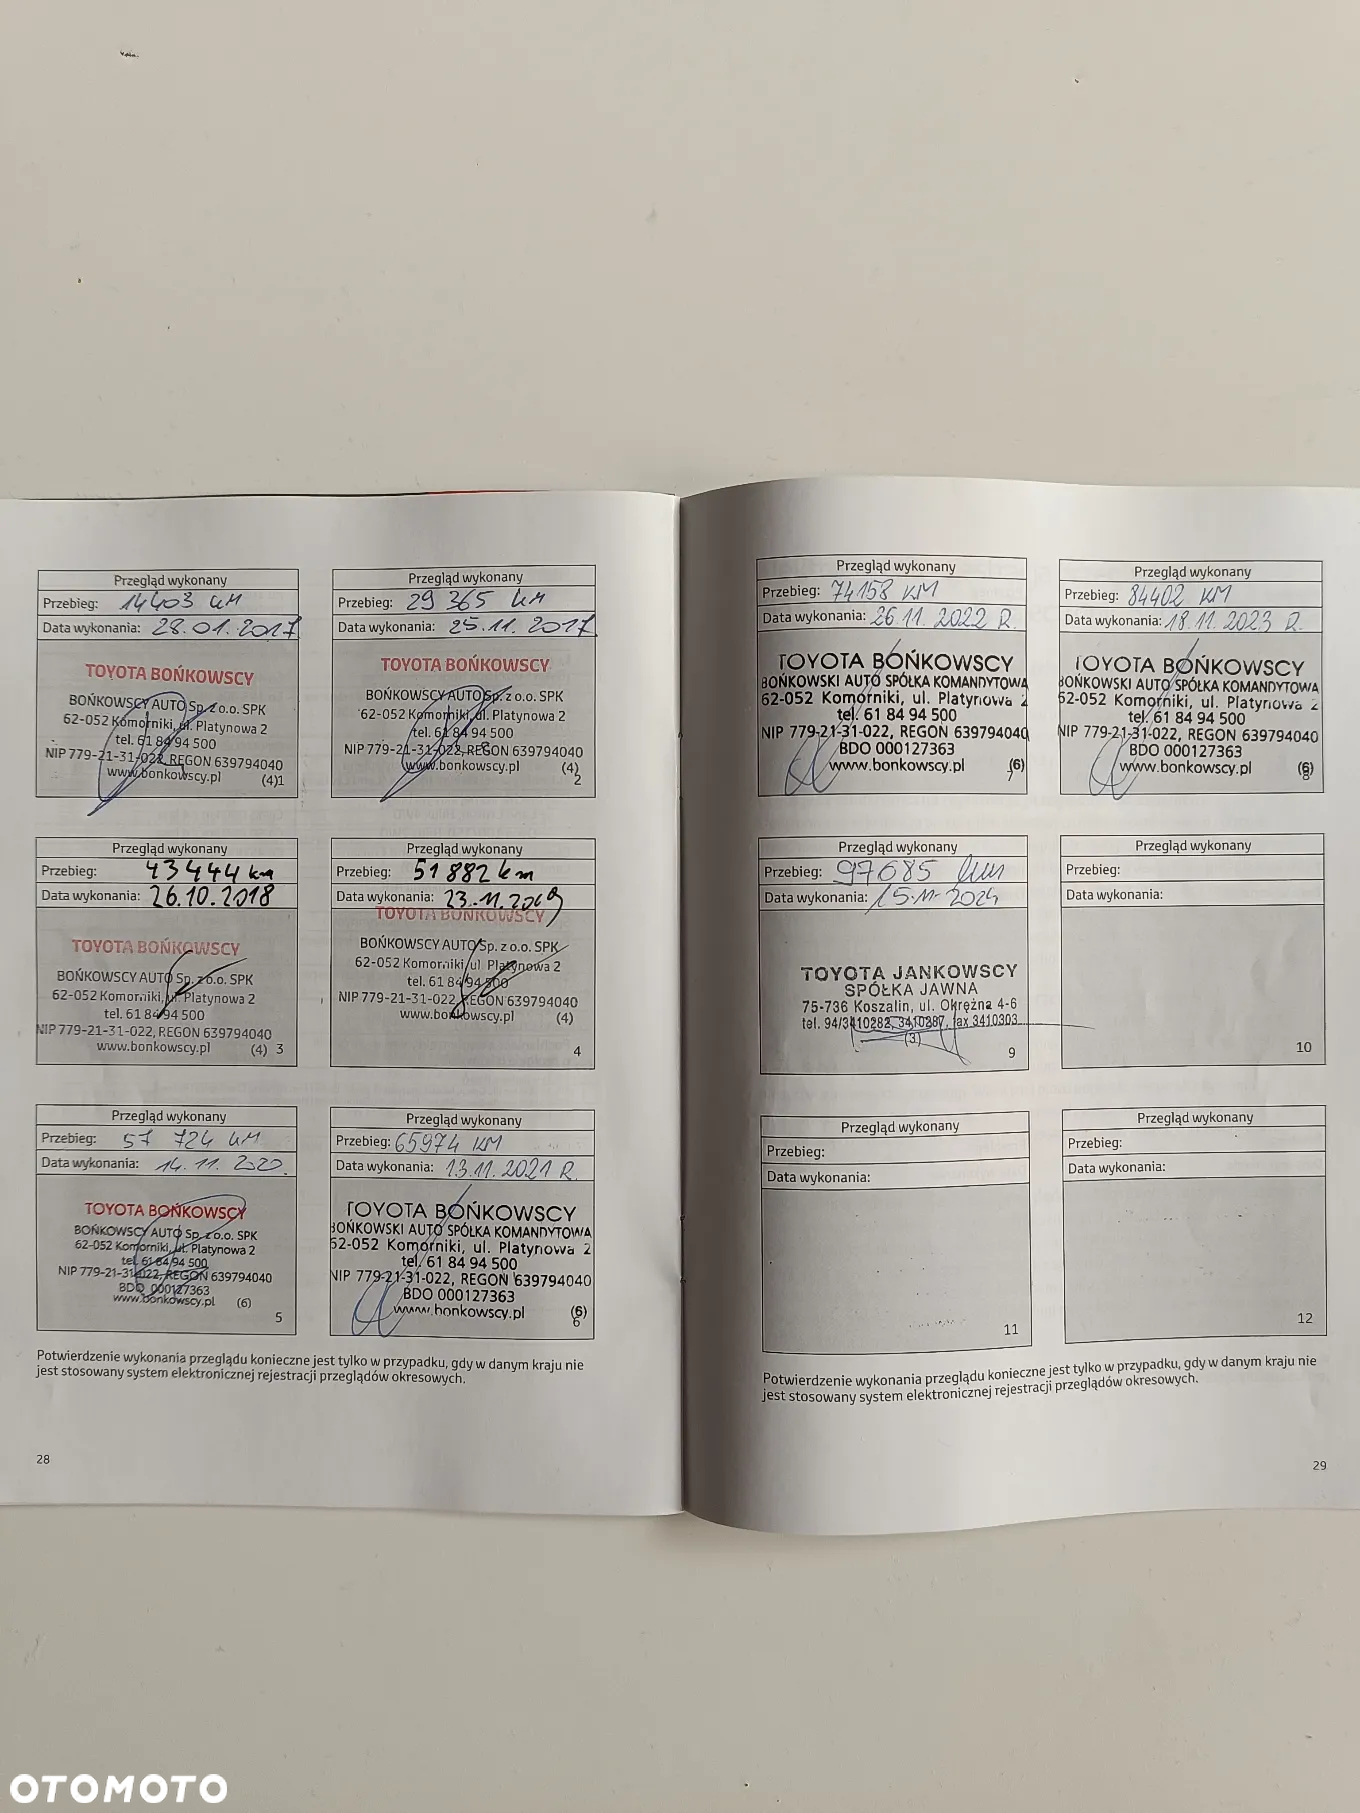 Przegląd wykonany
Przebieg: 14403 km
Data wykonania: 28.01.2017
TOYOTA BOŃKOWSCY
BOŃKOWSCY AUTO Sp. z o.o. SPK
62-052 Komorniki, ul. Platynowa 2
tel. 61 84 94 500
NIP 779-21-31-022, REGON 639794040
www.bonkowscy.pl (4)1
Przegląd wykonany
Przebieg: 29 365 km
Data wykonania: 25.11.2017
TOYOTA BOŃKOWSCY
BOŃKOWSCY AUTO Sp. z o.o. SPK
62-052 Komorniki, ul. Platynowa 2
tel. 61 84 94 500
NIP 779-21-31-022, REGON 639794040
www.bonkowscy.pl (4)
2
Przegląd wykonany
Przebieg: 43444 km
Data wykonania: 26.10.2018
TOYOTA BOŃKOWSCY
BOŃKOWSCY AUTO Sp. z o.o. SPK
62-052 Komorniki, ul. Platynowa 2
tel. 61 84 94 500
NIP 779-21-31-022, REGON 639794040
www.bonkowscy.pl (4) 3
Przegląd wykonany
Przebieg: 51882 km
Data wykonania: 23.11.2019
TOYOTA BOŃKOWSCY
BOŃKOWSCY AUTO Sp. z o.o. SPK
62-052 Komorniki, ul. Platynowa 2
tel. 61 84 94 500
NIP 779-21-31-022, REGON 639794040
www.bonkowscy.pl (4)
4
Przegląd wykonany
Przebieg: 57 724 km
Data wykonania: 14.11.2020.
TOYOTA BOŃKOWSCY
BOŃKOWSCY AUTO Sp. z o.o. SPK
62-052 Komorniki, ul. Platynowa 2
tel. 61 84 94 500
NIP 779-21-31-022, REGON 639794040
BDO 000127363
www.bonkowscy.pl (6)
5
Przegląd wykonany
Przebieg: 65974 KM
Data wykonania: 13.11.2021 R.
TOYOTA BOŃKOWSCY
BOŃKOWSKI AUTO SPÓŁKA KOMANDYTOWA
62-052 Komorniki, ul. Platynowa 2
tel. 61 84 94 500
NIP 779-21-31-022, REGON 639794040
BDO 000127363
www.bonkowscy.pl (6)
6
Potwierdzenie wykonania przeglądu konieczne jest tylko w przypadku, gdy w danym kraju nie
jest stosowany system elektronicznej rejestracji przeglądów okresowych.
28
Przegląd wykonany
Przebieg: 74158 KM
Data wykonania: 26.11.2022 R.
TOYOTA BOŃKOWSCY
BOŃKOWSKI AUTO SPÓŁKA KOMANDYTOWA
62-052 Komorniki, ul. Platynowa 2
tel. 61 84 94 500
NIP 779-21-31-022, REGON 639794040
BDO 000127363
www.bonkowscy.pl (6)
7
Przegląd wykonany
Przebieg: 84402 KM
Data wykonania: 18.11.2023 R.
TOYOTA BOŃKOWSCY
BOŃKOWSKI AUTO SPÓŁKA KOMANDYTOWA
62-052 Komorniki, ul. Platynowa 2
tel. 61 84 94 500
NIP 779-21-31-022, REGON 639794040
BDO 000127363
www.bonkowscy.pl (6)
8
Przegląd wykonany
Przebieg: 97685 km
Data wykonania: 15.11.2024
TOYOTA JANKOWSCY
SPÓŁKA JAWNA
75-736 Koszalin, ul. Okrężna 4-6
tel. 94/3410282, 3410287, fax 3410303
(3)
9
Przegląd wykonany
Przebieg:
Data wykonania:
10
Przegląd wykonany
Przebieg:
Data wykonania:
11
Przegląd wykonany
Przebieg:
Data wykonania:
12
Potwierdzenie wykonania przeglądu konieczne jest tylko w przypadku, gdy w danym kraju nie
jest stosowany system elektronicznej rejestracji przeglądów okresowych.
29
OTOMOTO